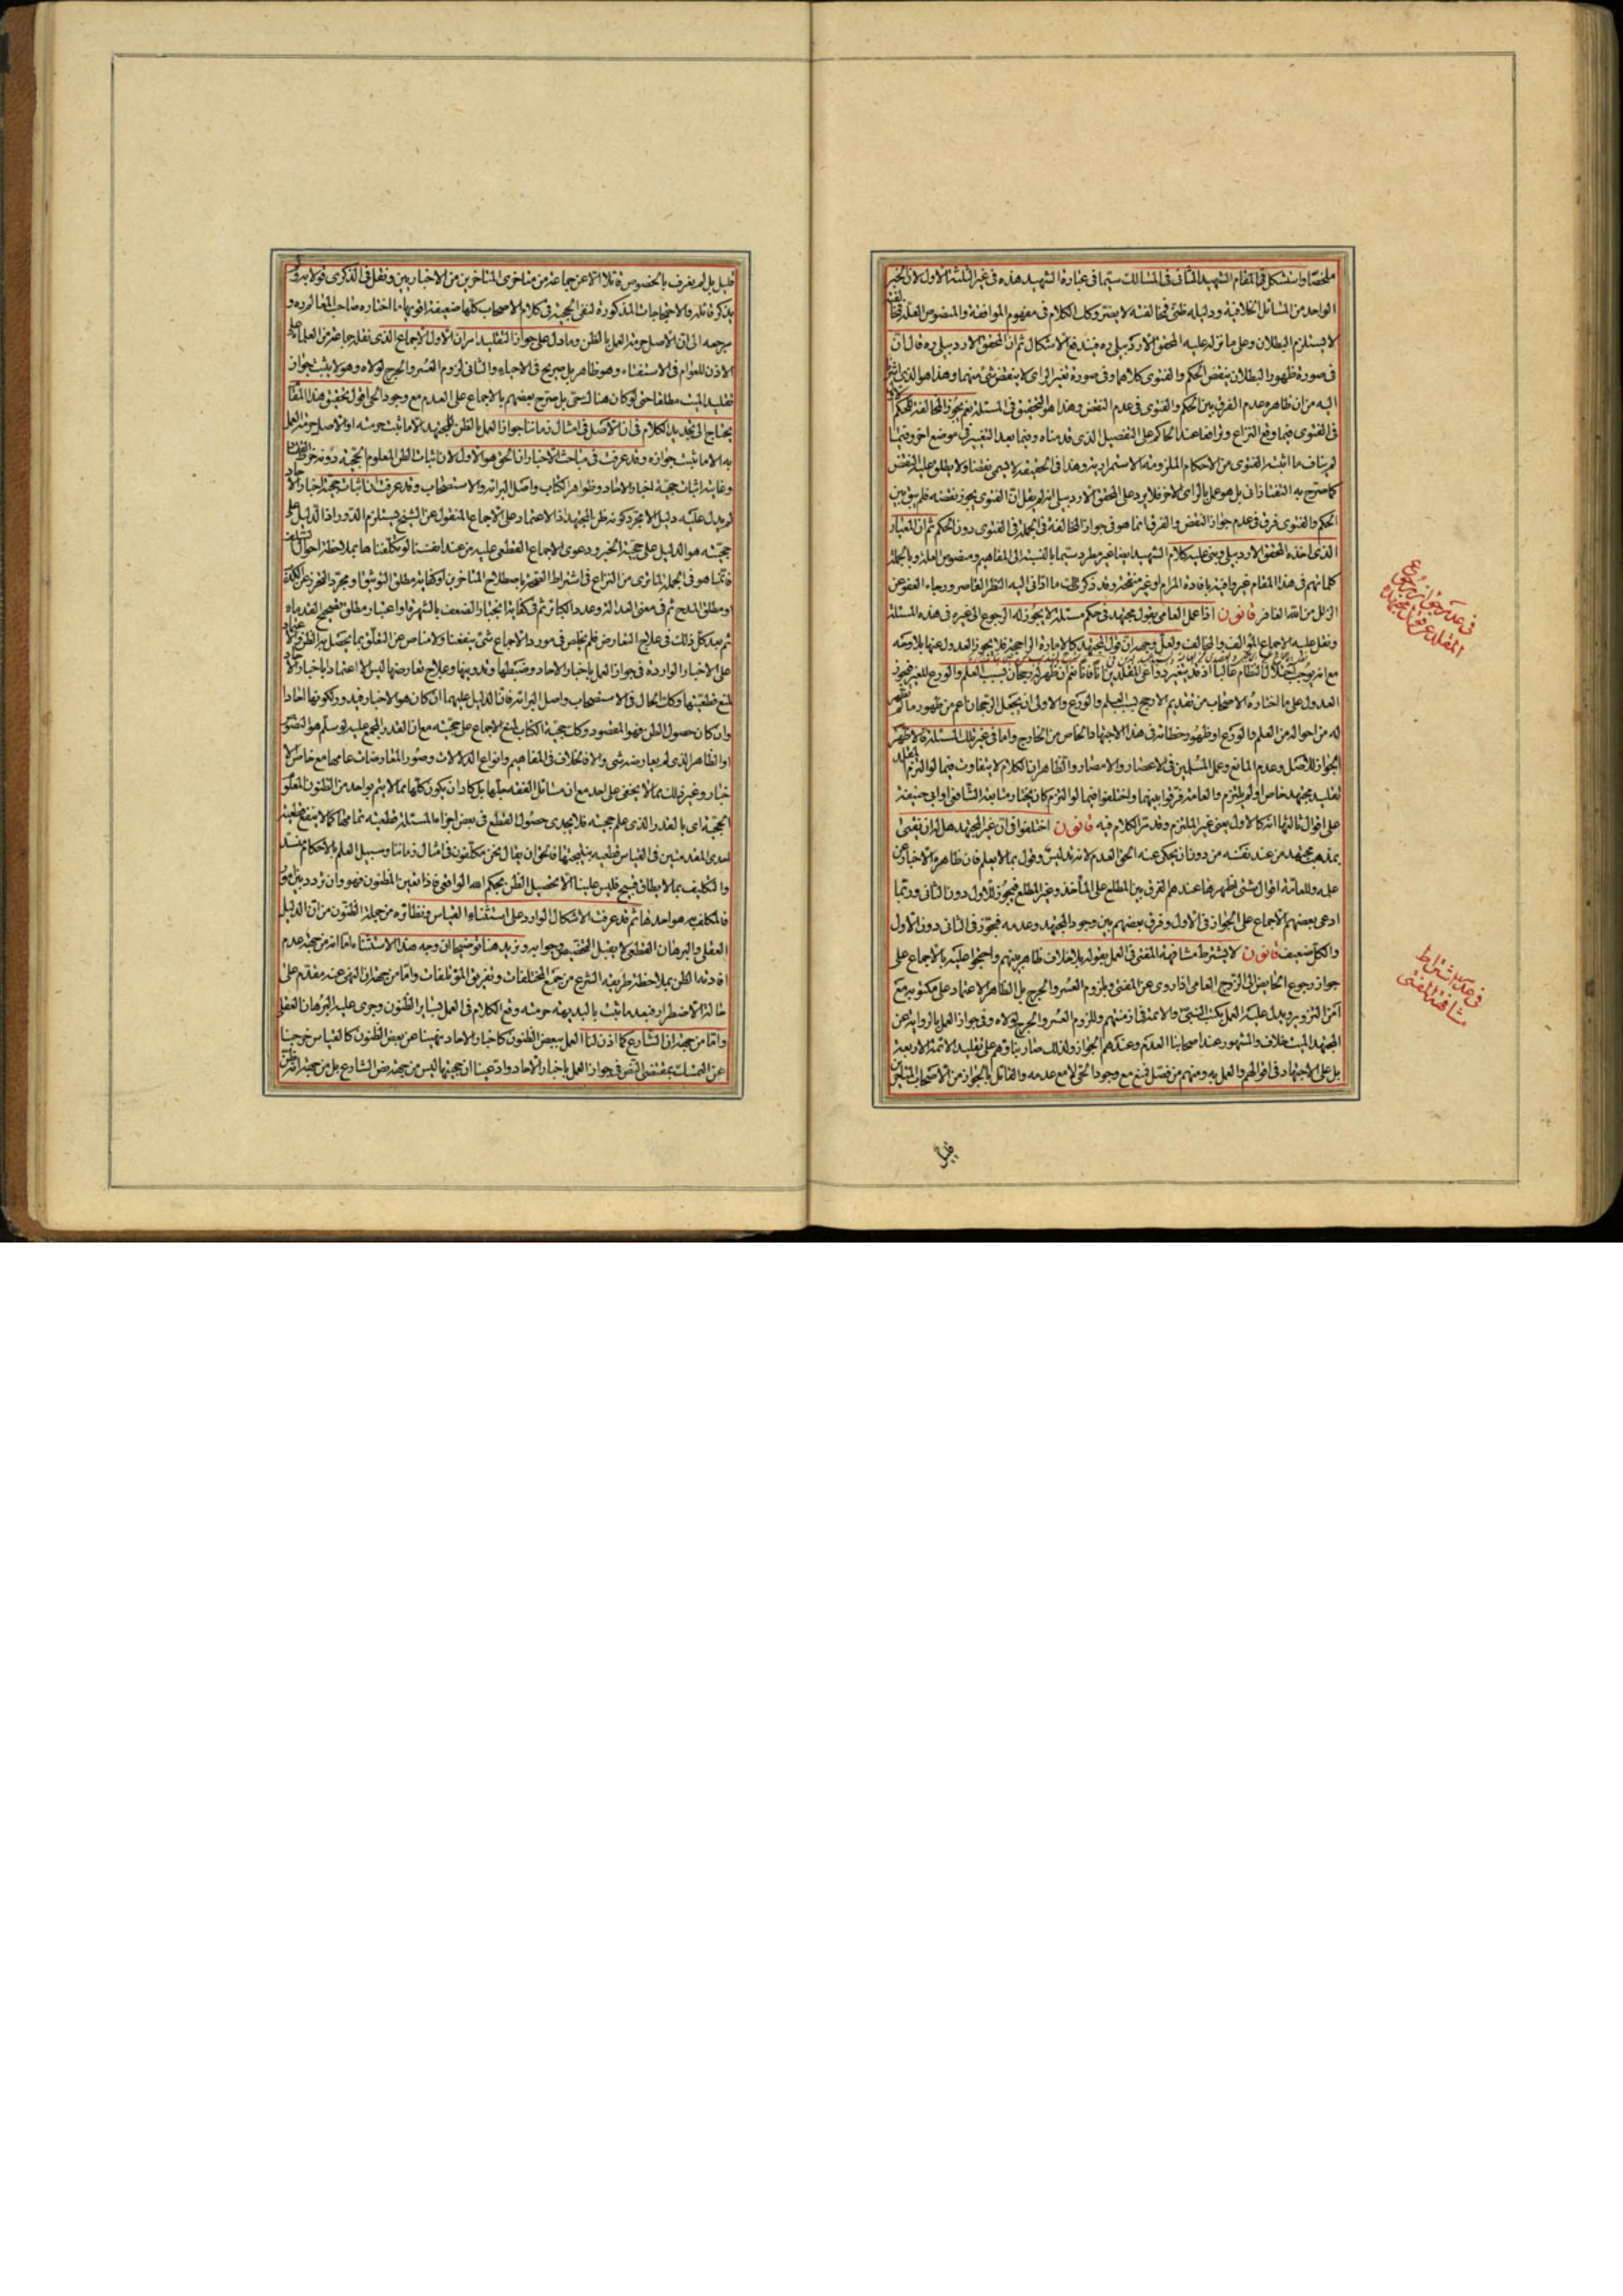 ملخصا واستشكل في المقام الشهيد الثاني في المسالك سيما في عبارة الشهيد هذه في غير الثلثة الاول لان الخبر
الواحد من المسائل الخلافية ودليله ظني فمخالفته لا يضر وكك الكلام في مفهوم الموافقة والمنصوص العلة
لا يستلزم البطلان وعلى ما نزله عليه المحقق الاردبيلي ره فيندفع الاشكال ثم ان المحقق الاردبيلي ره قال ان
في صورة ظهور البطلان ينقض الحكم والفتوى كلاهما وفي صورة تغير الراي لا ينقض شئ منهما وهذا هو الذي
اليه من ان ظاهره عدم الفرق بين الحكم والفتوى في عدم النقض وهذا هو التحقيق في المسئلة نعم يجوز المخالفة للحكم
في الفتوى فيما وقع النزاع وترافعا عند الحاكم على التفصيل الذي قدمناه وفيما بعد التغير في موضع اخر وفيما
لم يناف ما اثبته الفتوى من الاحكام الملزومة الاستمرارية وهذا في الحقيقة لا يسمى نقضا ولا يطلق عليه النقض
كما صرح به التفتازاني بل هو عمل بالراي الاخر فلا يرد على المحقق الاردبيلي انه لم يقل ان الفتوى يجوز نقضه فلم يبق بين
الحكم والفتوى فرق في عدم جواز النقض والفرق انما هو في جواز المخالفة في الجملة في الفتوى دون الحكم ثم ان المعيار
الذي اخذه المحقق الاردبيلي وبنى عليه كلام الشهيد ايضا غير مطرد سيما بالنسبة الى المفاهيم ومنصوص العلة وبالجملة
كلماتهم في هذا المقام غير وافية بافادة المرام او غير منقحة وقد ذكرت لك ما ادى اليه النظر القاصر ورجاء العفو عن
الزلل من الله الغافر قانون اذا عمل العامي بقول مجتهد في حكم مسئلة لا يجوز له الرجوع الى غيره في هذه المسئلة
ونقل عليه الاجماع المؤالف والمخالف ولعل وجهه ان قول المجتهد كالامارة الراجحة فلا يجوز العدول عنها بلا وجه
مع انه يوجب اختلال النظام غالبا اذ قد يتغير دواعي المقلدين انا فانا نعم ان ظهر له رجحان بسبب العلم والورع للغير فيجوز
العدول على ما اختاره الاصحاب من تقديم الارجح بالعلم والورع والاولى ان يجعل الرجحان اعم من ظهور ما لم
له من احواله من العلم والورع او ظهور خطائه في هذا الاجتهاد الخاص من الخارج واما في غير تلك المسئلة فالاظهر
الجواز للاصل وعدم المانع وعمل المسلمين في الاعصار والامصار والظاهر ان الكلام لا يتفاوت فيما لو التزم
تقليد مجتهد خاص او لم يلتزم والعامة فرقوا بينهما واختلفوا فيما لو التزم كان يختار متابعة الشافعي او ابي حنيفة
على اقوال ثالثها انه كالاول يعني غير الملتزم وقد مر الكلام فيه قانون اختلفوا في ان غير المجتهد هل له ان يفتي
بمذهب مجتهد من عند نفسه من دون ان يحكي عنه الحق العدم لانه تدليس وقول بما لا يعلم فان ظاهره الاخبار عن
علمه وللعامة اقوال شتى اظهرها عندهم الفرق بين المطلع على المأخذ وغير المطلع فيجوز للاول دون الثاني وربما
ادعى بعضهم الاجماع على الجواز في الاول وفرق بعضهم بين وجود المجتهد وعدمه فيجوز في الثاني دون الاول
والكل ضعيف قانون لا يشترط مشافهة المفتي في العمل بقوله بلا خلاف ظاهر بينهم واحتجوا عليه بالاجماع على
جواز رجوع الحايض الى الزوج العامي اذا روى عن المفتي وبلزوم العسر والحرج بل الظاهر الاعتماد على مكتوبه مع
امن التزوير ويدل عليه العمل بكتب النبي والائمة في ازمنتهم وللزوم العسر والحرج لولاه وفي جواز العمل بالرواية عن
المجتهد الميت خلاف والمشهور عند اصحابنا العدم وعندهم الجواز ولذلك صار بناؤهم على تقليد الائمة الاربعة
بل على الاجتهاد في اقوالهم والعمل به ومنهم من فصل فمنع مع وجود الحي لا مع عدمه والقائل بالجواز من الاصحاب
قليل
في عدم جواز رجوع
المقلد عن قول مجتهده
في عدم اشتراط
مشافهة المفتي
قليل بل لم يعرف بالخصوص قائلا الا عن جماعة من متاخري المتاخرين من الاخباريين ونقل في الذكرى قولا به ولم
يذكر قائله والاحتجاجات المذكورة لنفي الحجية في كلام الاصحاب كلها ضعيفة اقويها ما اختاره صاحب المعالم ره و
مرجعه الى ان الاصل حرمة العمل بالظن وما دل على جواز التقليد امران الاول الاجماع الذي نقله جماعة من العلماء على
الاذن للعوام في الاستفتاء وهو ظاهر بل صريح في الاحياء والثاني لزوم العسر والحرج لولاه وهو لا يثبت جواز
تقليد الميت مطلقا حتى لو كان هناك حي بل صرح بعضهم بالاجماع على العدم مع وجود الحي اقول تحقيق هذا المقام
يحتاج الى تجديد الكلام في ان الاصل في امثال زماننا جواز العمل بالظن للمجتهد الا ما اثبت حرمته او الاصل حرمة العمل
به الا ما ثبت جوازه وقد عرفت في مباحث الاخبار ان الحق هو الاول لان اثبات الظن المعلوم الحجية دونه خرط القتاد
وغاية اثبات حجية اخبار الاحاد وظواهر الكتاب واصل البرائة والاستصحاب وقد عرفت ان اثبات حجية اخبار الاحاد
لم يدل عليه دليل الا مجرد كونه ظن المجتهد اذ الاعتماد على الاجماع المنقول عن الشيخ يستلزم الدور اذ الدليل على
حجيته هو الدليل على حجية الخبر ودعوى الاجماع القطعي عليه من عند انفسنا لو تكلفناها بملاحظة احوال السلف
فانما هو في الجملة لما ترى من النزاع في اشتراط العدالة باصطلاح المتاخرين او كفاية مطلق التوثيق او مجرد التحرز عن الكذب
او مطلق المدح ثم في معنى العدالة وعدد الكبائر ثم في كفاية انجبار الضعف بالشهرة او اعتبار مطلق تصحيح القدماء
ثم بعد كل ذلك في علاج التعارض فلم يخلص في مورد الاجماع شئ ينفعنا ولا مناص عن التعلق بما يحصل به الظن والاعتماد
على الاخبار الواردة في جواز العمل باخبار الاحاد وضبطها وتدوينها وعلاج تعارضها ليس الا اعتمادا باخبار الاحاد
لمنع قطعيتها وكذا الحال في الاستصحاب واصل البرائة فان الدليل عليهما ان كان هو الاخبار فيدور لكونها احادا
وان كان حصول الظن فهو المقصود وكك حجية الكتاب لمنع الاجماع على حجيته مع ان القدر المجمع عليه لو سلم هو النصوص
او الظاهر الذي لم يعارضه شئ والاختلاف في المفاهيم وانواع الدلالات وصور المعارضات عامها مع خاص الا
خبار وغير ذلك مما لا يخفى على احد مع ان مسائل الفقه جلها بل كاد ان يكون كلها مما لا يتم بواحد من الظنون المعلومة
الحجية اي بالقدر الذي علم حجيته فلا يجدي حصول القطع في بعض اجزاء المسئلة قطعية تمامها كما لا ينفع قطعية
احدى المقدمتين في القياس قطعية نتيجتها فالحق ان يقال نحن مكلفون في امثال زماننا وسبيل العلم بالاحكام منسد
والتكليف بما لا يطاق قبيح فليس علينا الا تحصيل الظن بحكم الله الواقعي فاذا تعين المظنون فهو وان تردد بين امور
فالمكلف به هو احدها ثم قد عرفت الاشكال الوارد على استثناء القياس ونظائره من جملة الظنون من ان الدليل
العقلي والبرهان القطعي لا يقبل التخصيص وجوابه ونزيد هنا توضيحا ان وجه هذا الاستثناء اما انه من جهة عدم
افادته الظن بملاحظة طريقة الشرع من جمع المختلفات وتفريق المؤتلفات واما من جهة ان النهي عنه مقدم على
حالة الاضطرار فبعد ما ثبت بالبديهة حرمته وقع الكلام في العمل بسائر الظنون وجرى عليه البرهان العقلي
واما من جهة ان الشارع كما اذن لنا العمل ببعض الظنون كاخبار الاحاد ونهينا عن بعض الظنون كالقياس خرجنا
عن التمسك بمقتضى النص في جواز العمل باخبار الاحاد وادعينا ان حجيتها ليس من جهة نص الشارع بل من جهة انه ظن